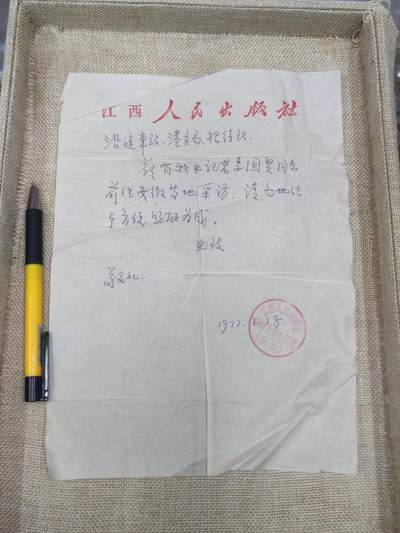 江西人民出版社
沿途车站、港务局、招待所:
兹有我社记者 同志
前往安徽等地采访,请各地给
予方便,照顾为感。
此致
敬礼:
1977. 8.